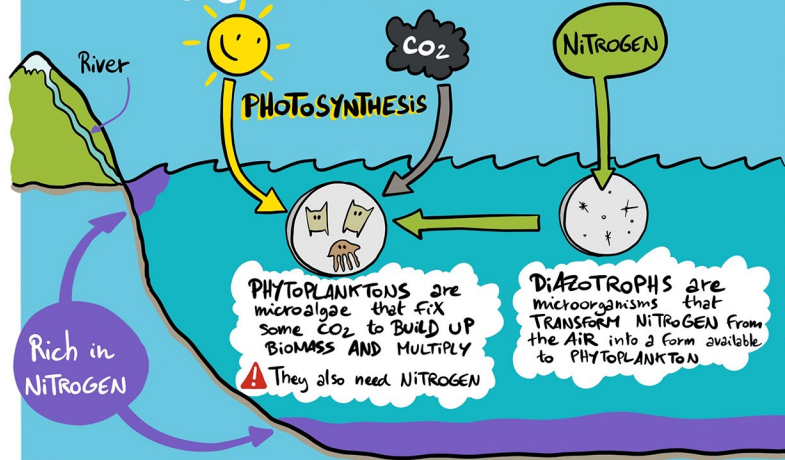 River
CO2
NiTROGEN
PHOTOSYNTHESIS
PHYTOPLANKTONS are
microalgae that fiX
some CO2 to BUiLD UP
BiOMASS AND MULTiPLY
They also need NiTROGEN
DiAZOTROPHS are
microorganisms that
TRANSFORM NiTROGEN From
the AiR into a form available
to PHYTOPLANKTON
Rich in
NiTROGEN